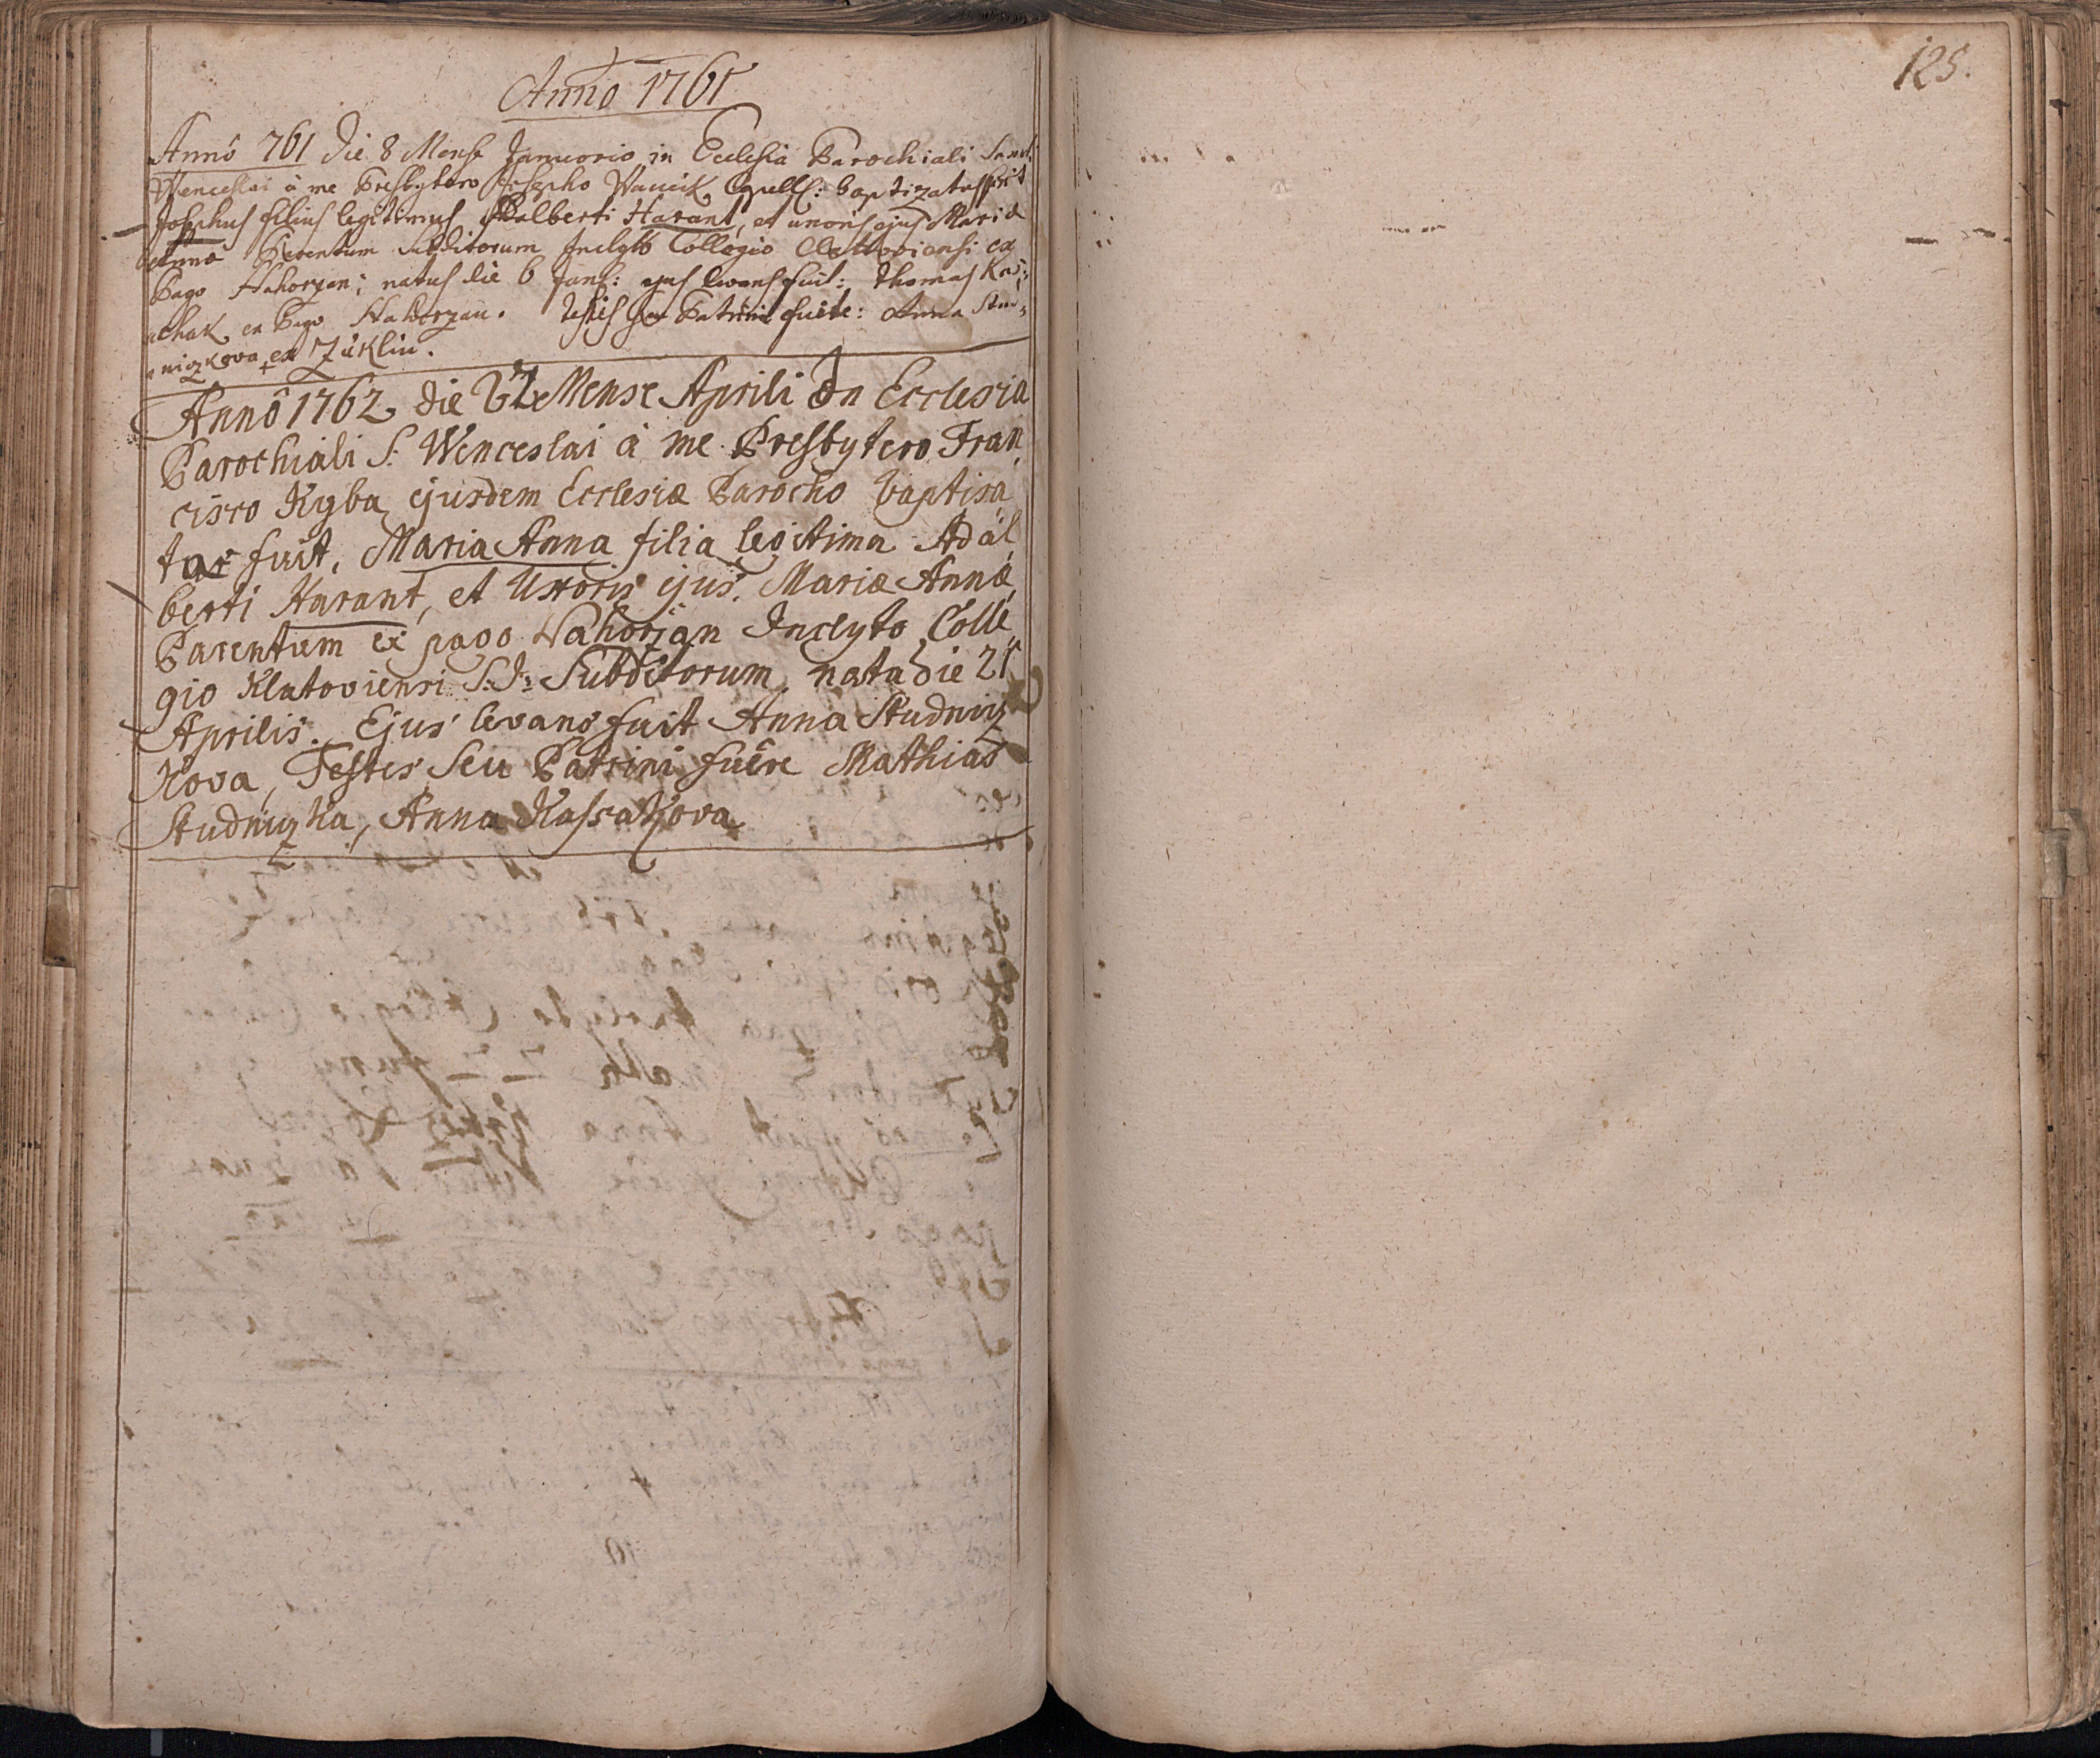 Anno 1761
Anno 761 die 8 Mense Januario in Ecclesia Parochiali Sancti
Wenceslai à me Presbytero Josepho baptizatus fuit
Josephus filius legitimus Adalberti Harant, et uxoris ejus Mariæ
Annæ Parentum Subditorum Inclyto Collegio Clattoviensi ex
Pago Nahorzan; natus die 6 Jans: ejus levans fuit: Thomas Kas:
achak ex Pago Nahorzan. Testes seu Patrini fuêre: Anna Stud:
niczkova ex Zuklin.
Annô 1762 die Mense Aprili In Ecclesia
Parochiali S. Wenceslai à me Presbytero Fran
cisco Ryba ejusdem Ecclesiæ Parocho baptisa
ta fuit, Maria Anna filia legitima Adal
berti Harant, et Uxoris ejus Mariæ Annæ,
Parentum ex pago Nahorzan Inclyto Colle
gio Klatoviensi S: J: Subditorum nata die 21
Aprilis. Ejus levans fuit Anna Studnicz
kova, Testes Seu Patrini fuêre Mathias
Studniczka, Anna Kassakova.
125.